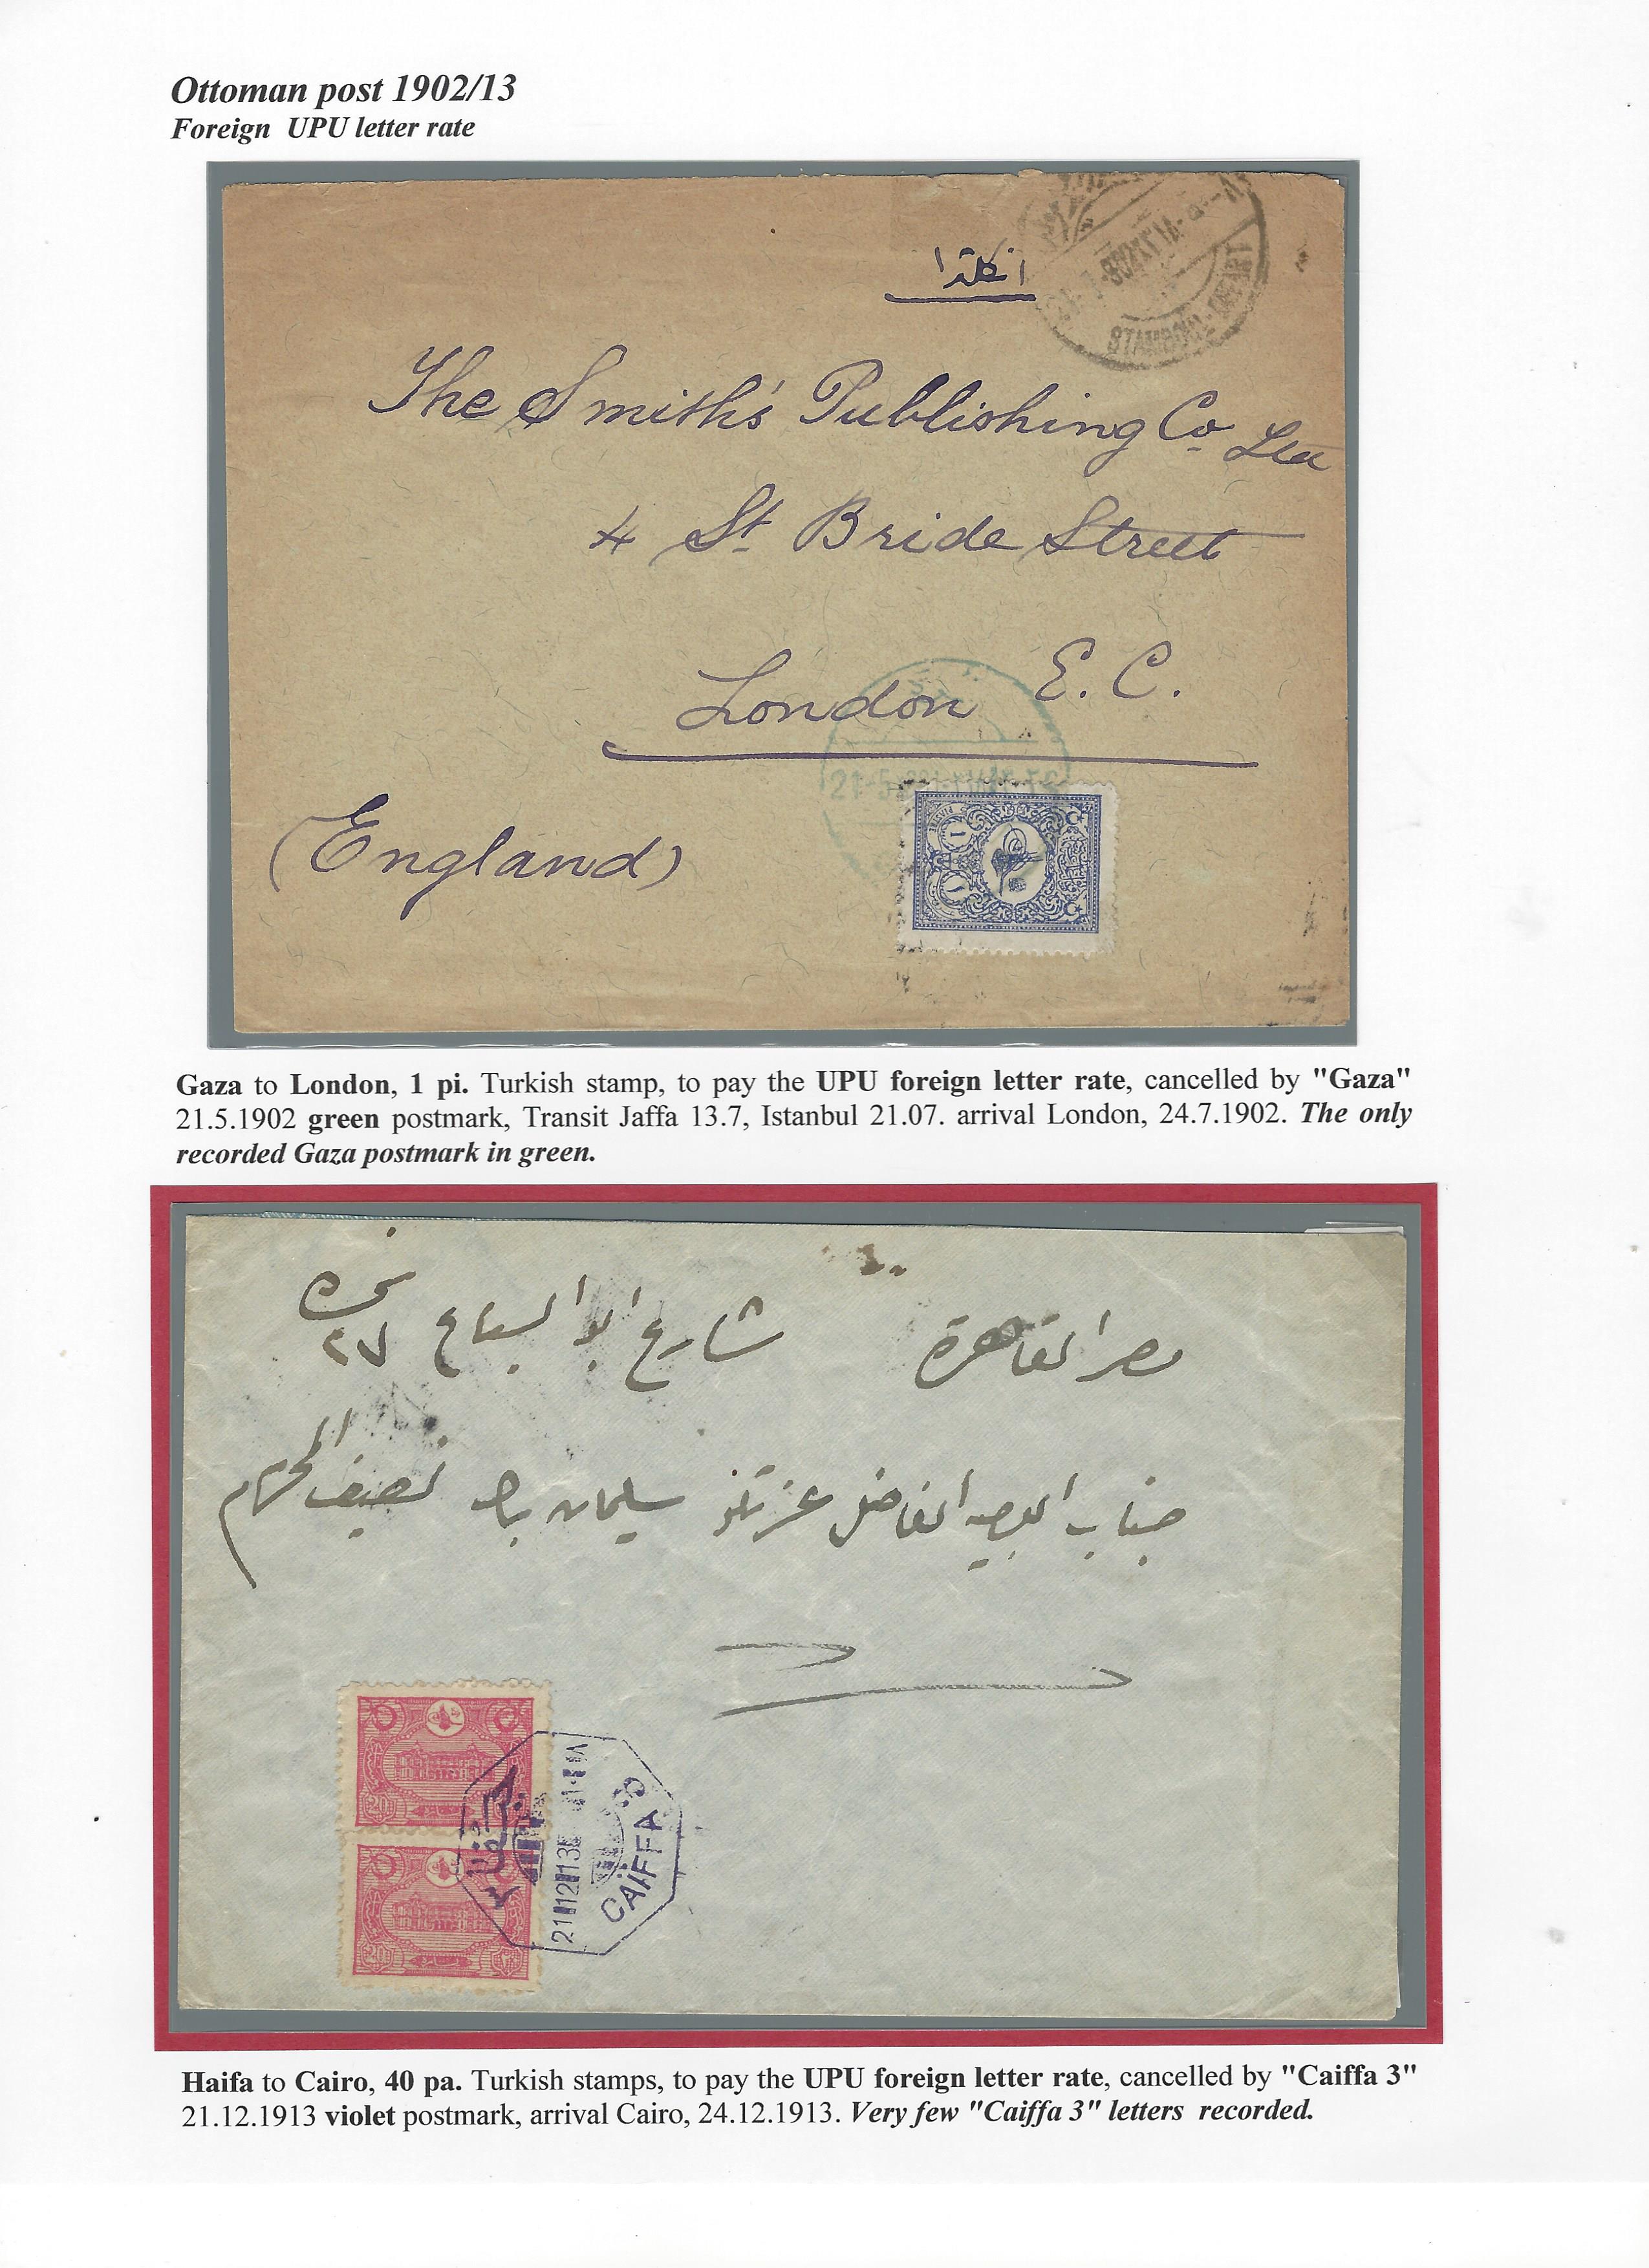 Ottoman post 1902/13
Foreign UPU letter rate
انكلترا
STAMBOUL-DÉPART
The Smith's Publishing Co Ltd
4 St Bride Street
London E. C.
(England)
21-5-
Gaza to London, 1 pi. Turkish stamp, to pay the UPU foreign letter rate, cancelled by "Gaza"
21.5.1902 green postmark, Transit Jaffa 13.7, Istanbul 21.07. arrival London, 24.7.1902. The only
recorded Gaza postmark in green.
مصر القاهرة شارع ابو السباع نمرة
٢٧
جناب الوجيه الفاضل عزتلو سليمان بك نصيف المحترم
20 
20
21 12 13
CAÏFFA 3
Haifa to Cairo, 40 pa. Turkish stamps, to pay the UPU foreign letter rate, cancelled by "Caiffa 3"
21.12.1913 violet postmark, arrival Cairo, 24.12.1913. Very few "Caiffa 3" letters recorded.